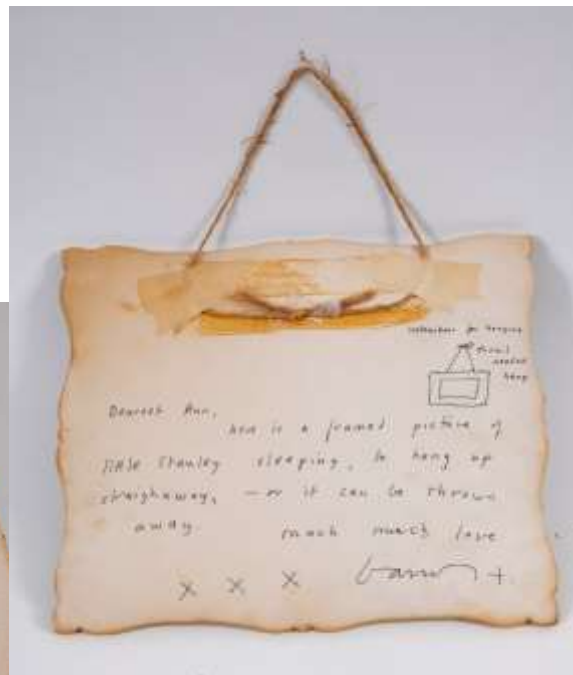 instructions for hanging
Dearest Ann,
here is a framed picture of
little Stanley sleeping, to hang up
straighaway, – or it can be thrown
away.
much much love
x x x